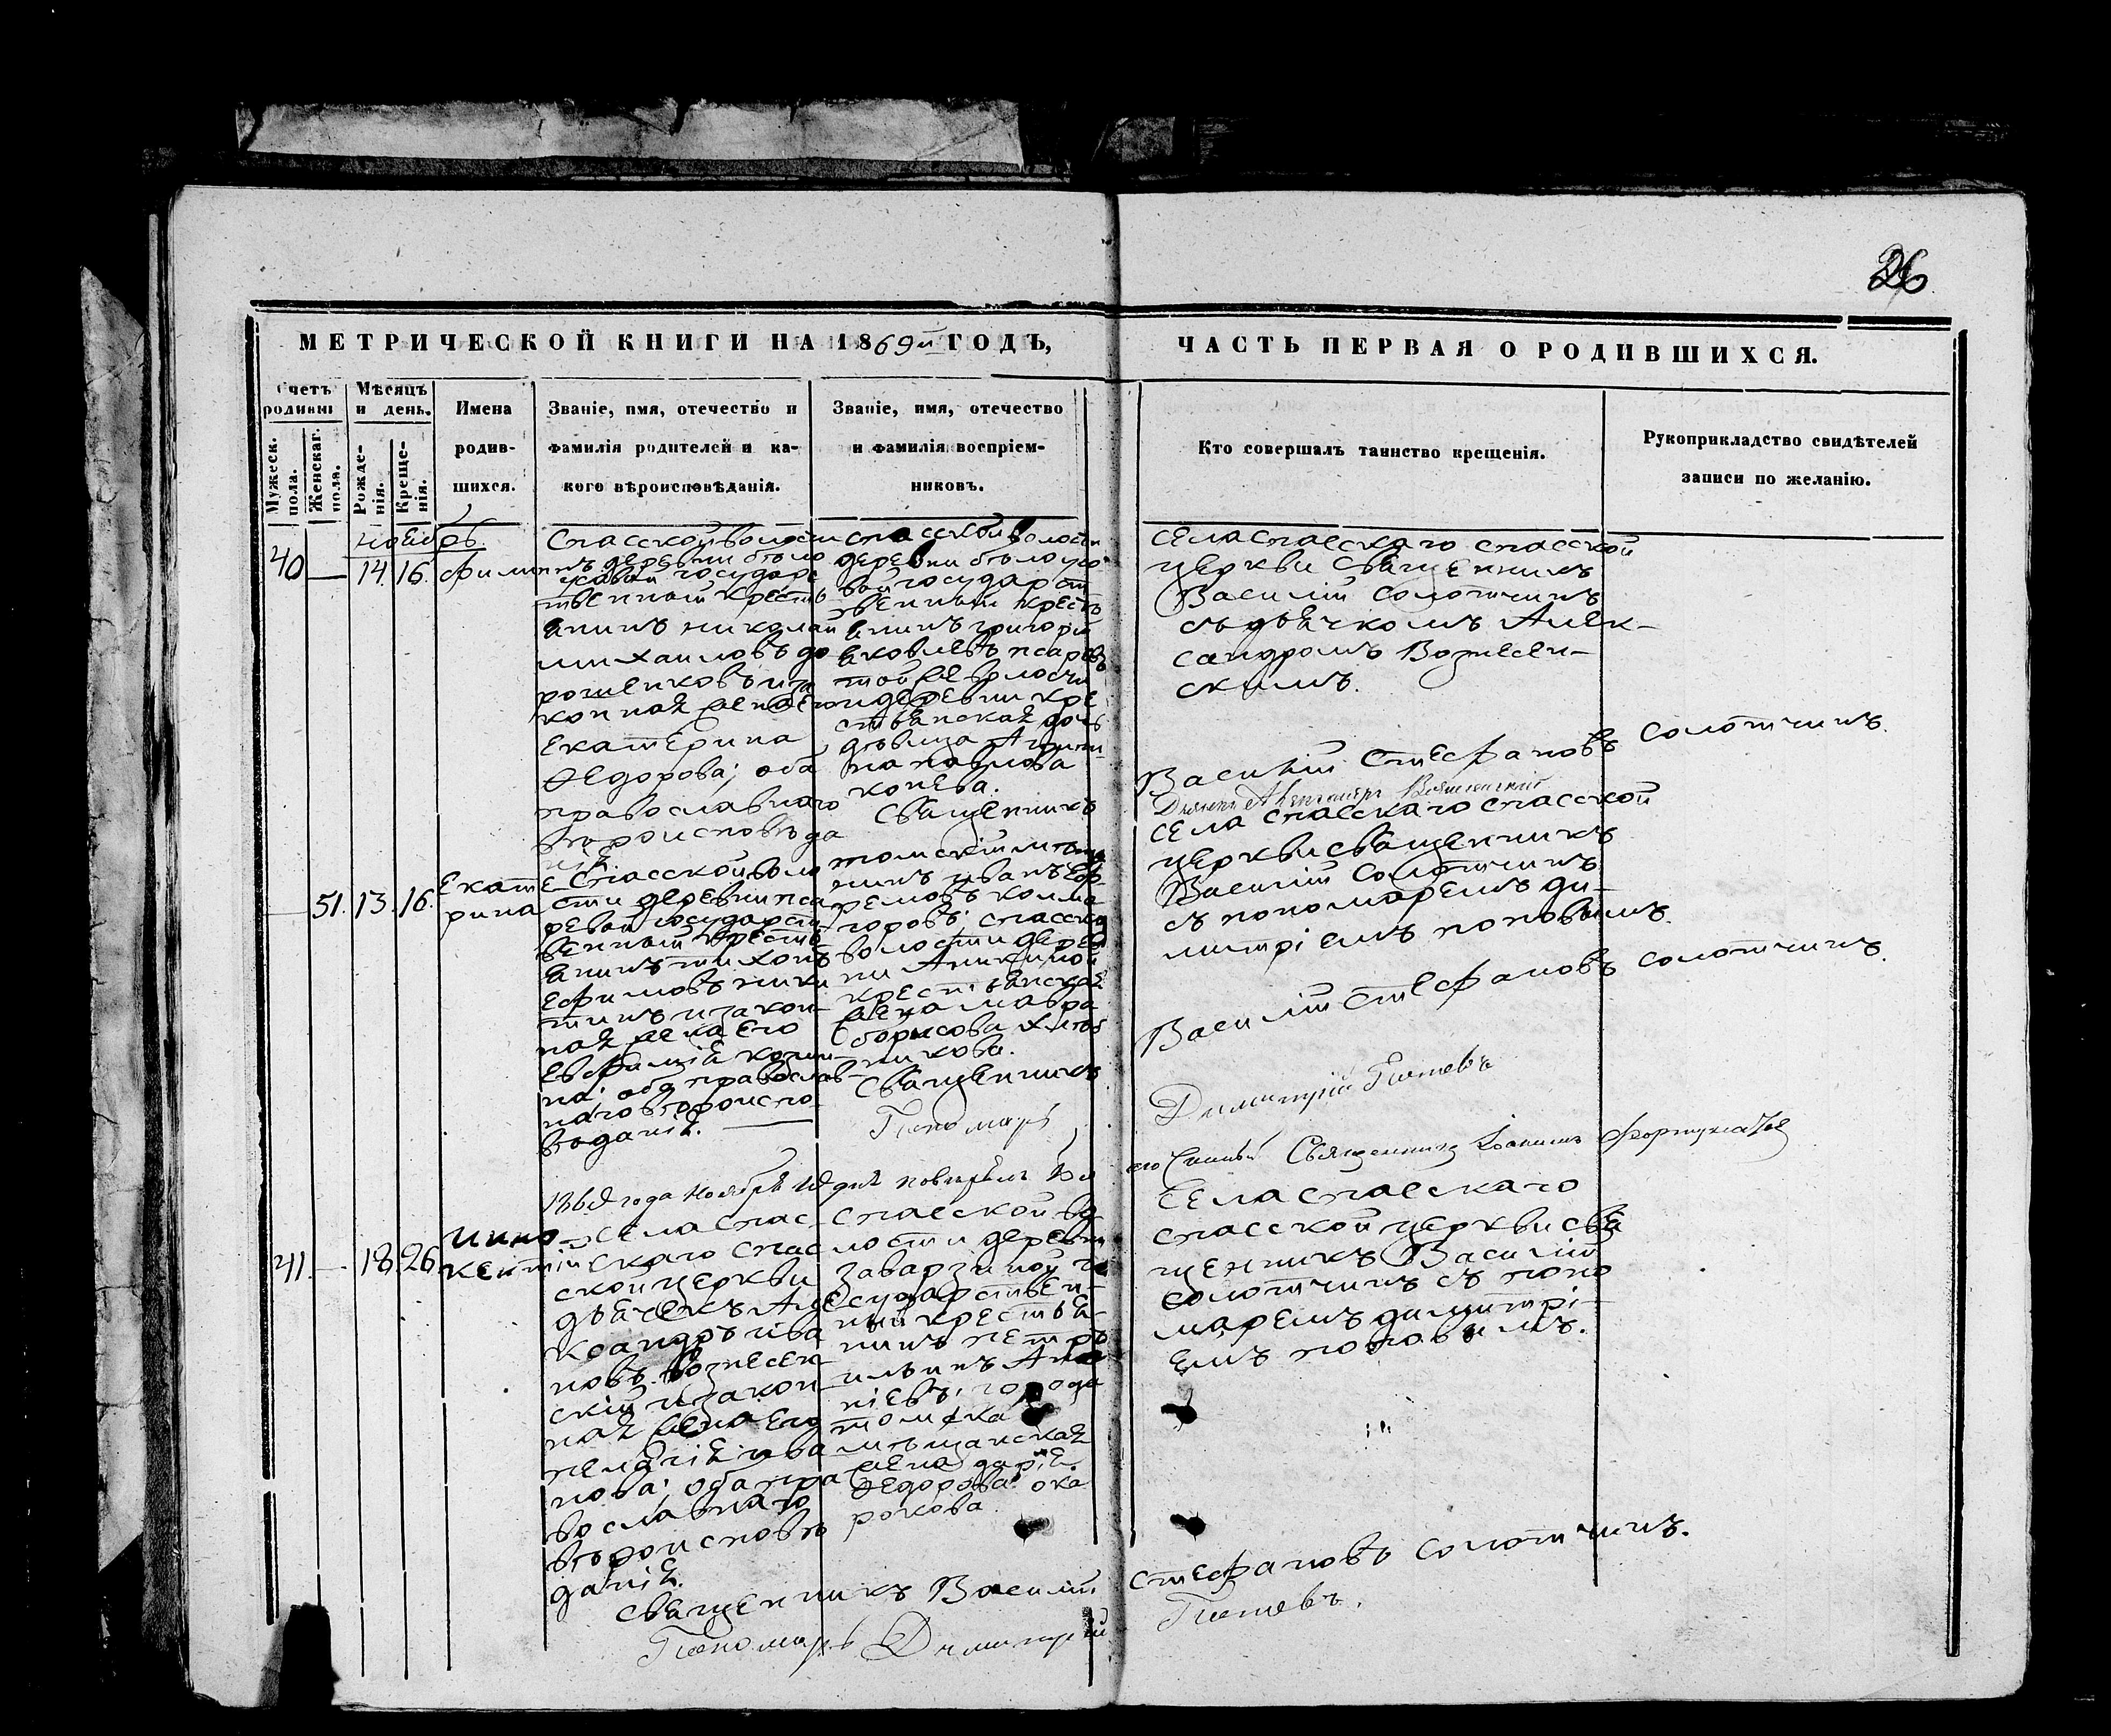 26
МЕТРИЧЕСКОЙ КНИГИ НА 1869й ГОДЪ,
ЧАСТЬ ПЕРВАЯ О РОДИВШИХСЯ.
Счетъ родивш
Мужеск. пола.
Женскаг. пола.
Мѣсяцъ и день.
Рожде-
нія.
Креще-
нія.
Имена
родив-
шихся.
Званіе, имя, отечество и
фамилія родителей и ка-
кого вѣроисповѣданія.
Званіе, имя, отечество
и фамилія воспріем-
никовъ.
Кто совершалъ таинство крещенія.
Рукоприкладство свидѣтелей
записи по желанію.
ноябрь.
40 — 14. 16.
Филиппъ
Спасской волости
деревни бѣло
усовой государс
твенный кресть
янинъ николай
михаиловъ до
рошенковъ и за
конная жена его
екатерина
Ѳедорова; оба
православнаго
вѣроисповѣда
нія.
спасской волости
деревни бѣлоусо
вой государст
венный кресть
янинъ григорій
яковлевъ писаревъ
той же волости
и деревни кре
стьянская дочь
дѣвица
павлова
конева.
Священникъ
села спасскаго спасской
церкви священникъ
Василій солотчинъ
съ дьячкомъ Алек-
сандромъ Вознесен-
скимъ.
Василій Стефановъ солотчинъ.
Дьячекъ Александръ Вознесенскій
— 51. 13. 16.
Екате
рина
Спасской воло
сти деревни пса
ревой государст
венный кресть
янинъ тихонъ
ефимовъ ники
тинъ и закон-
ная жена его
евфимія козми-
на; оба православ-
наго вѣроиспо-
вѣданія.
томскій мѣща
нинъ иванъ Еф-
ремовъ колма
горовъ; спасской
волости дерев
ни Аникиной
крестьянская
жена мавра
борисова хлѣб
никова.
Священникъ
Пономарь
села спасскаго спасской
церкви священникъ
Василій Солотчинъ
съ пономаремъ ди-
митріемъ поповымъ.
Василій Стефановъ солотчинъ.
Димитрій Поповъ
1869 года Ноября
Священникъ Іоаннъ
41. — 18. 26.
инно
кентій
села спас
скаго спас
ской церкви
дьячекъ Але
ксандръ ива
новъ вознесен
скій и закон
ная жена его
пелагія ива
нова; оба пра
вославнаго
вѣроисповѣ
данія.
спасской во
лости деревни
заварзиной го
сударствен-
ный крестья
нинъ петръ
ильинъ
города
томска
мѣщанская
жена дарія
Ѳедорова ока
рокова
села спасскаго
спасской церкви свя
щенникъ Василій
солотчинъ съ поно
маремъ димитрі-
емъ поповымъ.
священникъ Василій Стефановъ солотчинъ.
Пономарь Димитрій Поповъ.